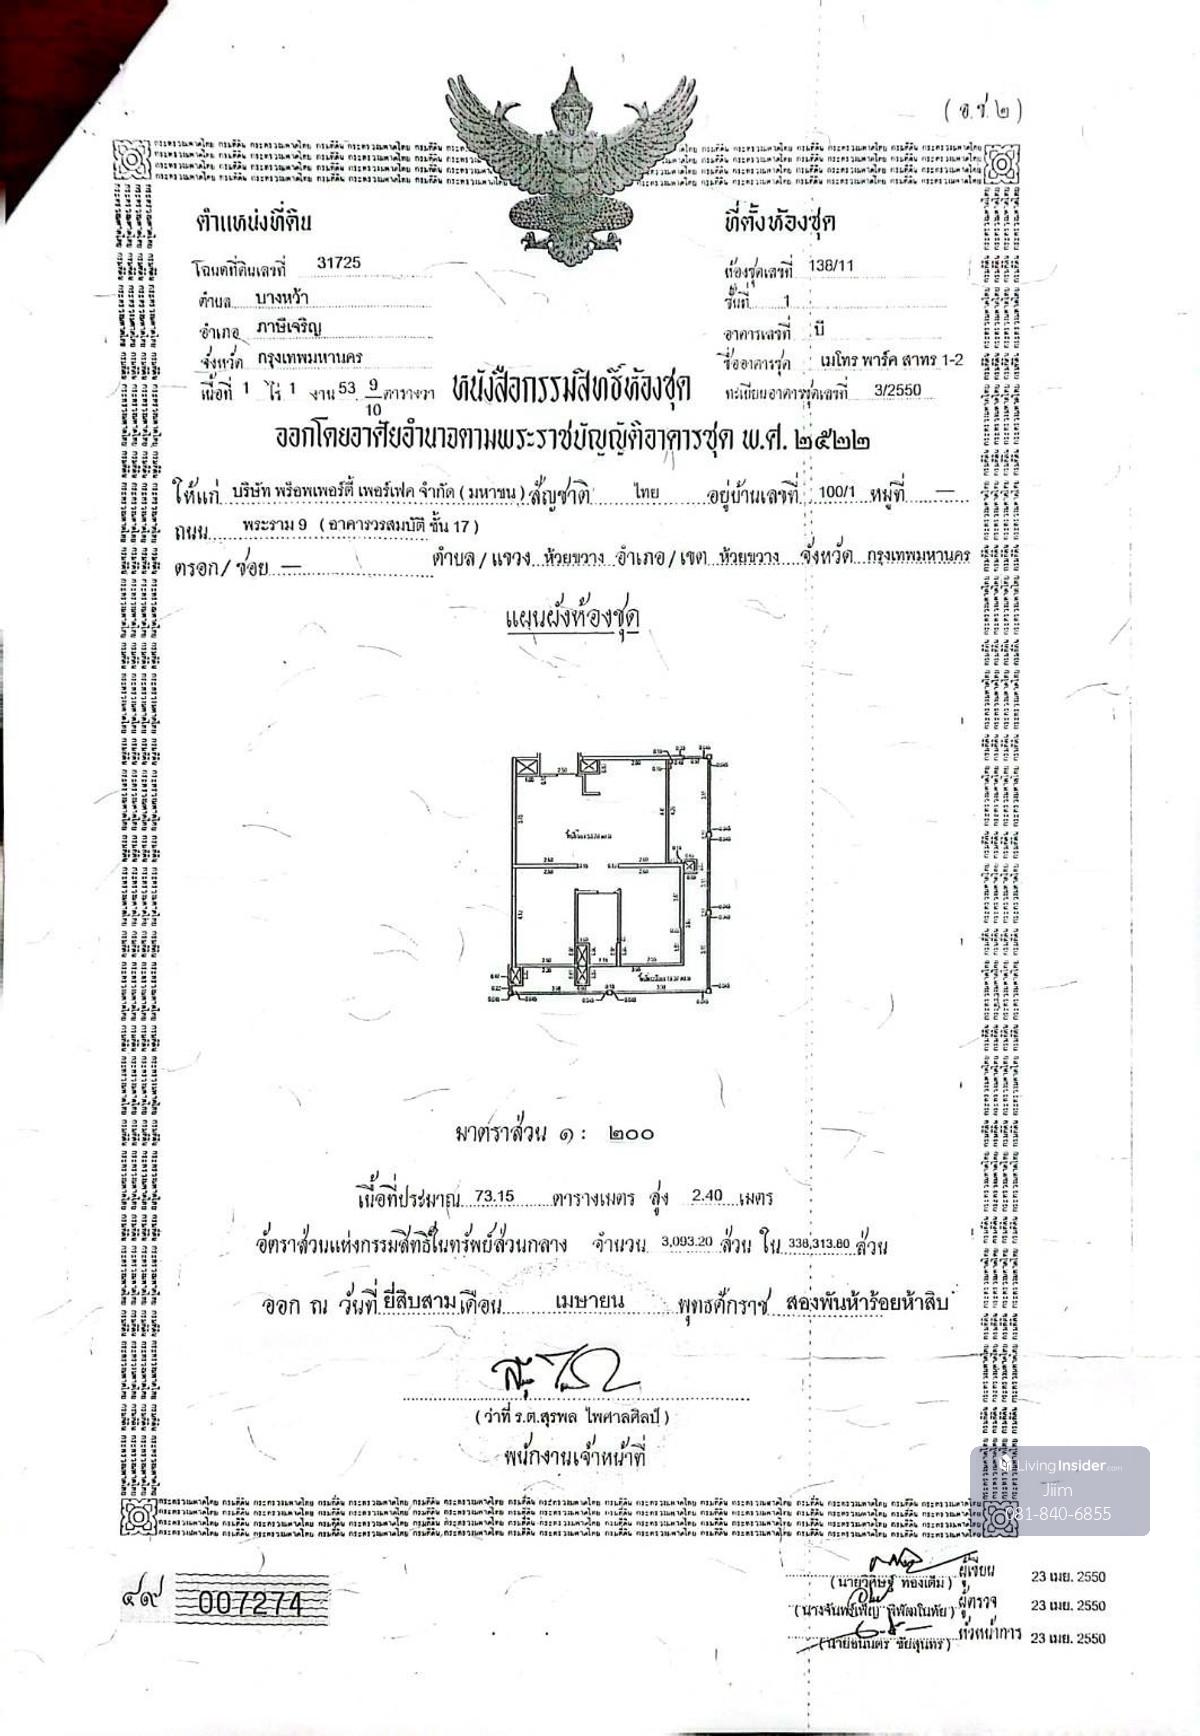 ( อ.ช.๒ )
ตำแหน่งที่ดิน
ที่ตั้งห้องชุด
โฉนดที่ดินเลขที่ 31725
ห้องชุดเลขที่ 138/11
ตำบล บางหว้า
ชั้นที่ 1
อำเภอ ภาษีเจริญ
อาคารเลขที่ บี
จังหวัด กรุงเทพมหานคร
ชื่ออาคารชุด เมโทร พาร์ค สาทร 1-2
เนื้อที่ 1 ไร่ 1 งาน 53 9/10 ตารางวา
ทะเบียนอาคารชุดเลขที่ 3/2550
หนังสือกรรมสิทธิ์ห้องชุด
ออกโดยอาศัยอำนาจตามพระราชบัญญัติอาคารชุด พ.ศ. ๒๕๒๒
ให้แก่ บริษัท พร็อพเพอร์ตี้ เพอร์เฟค จำกัด ( มหาชน ) สัญชาติ ไทย อยู่บ้านเลขที่ 100/1 หมู่ที่ —
ถนน พระราม 9 ( อาคารวรสมบัติ ชั้น 17 )
ตรอก/ซอย — ตำบล/แขวง ห้วยขวาง อำเภอ/เขต ห้วยขวาง จังหวัด กรุงเทพมหานคร
แผนผังห้องชุด
มาตราส่วน ๑ : ๒๐๐
เนื้อที่ประมาณ 73.15 ตารางเมตร สูง 2.40 เมตร
อัตราส่วนแห่งกรรมสิทธิ์ในทรัพย์ส่วนกลาง จำนวน 3,093.20 ส่วน ใน 338,313.80 ส่วน
ออก ณ วันที่ ยี่สิบสาม เดือน เมษายน พุทธศักราช สองพันห้าร้อยห้าสิบ
( ว่าที่ ร.ต.สุรพล ไพศาลศิลป์ )
พนักงานเจ้าหน้าที่
LivingInsider.com
Jiim
081-840-6855
๔๙ 007274
ผู้เขียน 23 เมย. 2550
(นายวิศิษฐ์ ทองเต็ม)
ผู้ตรวจ 23 เมย. 2550
หัวหน้าการ 23 เมย. 2550